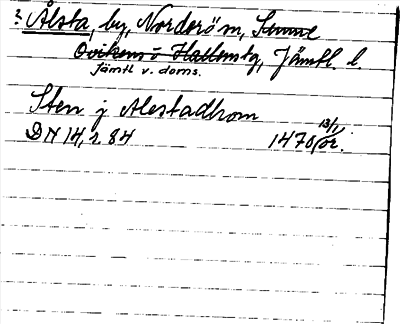 ? Ålsta, by, Norderö sn, Sunne
Ovikens o Hallens tg, Jämtl l.
Jämtl v. doms.
Sten j Alestadhom
DN 14, s. 84 1470 13/1 or.